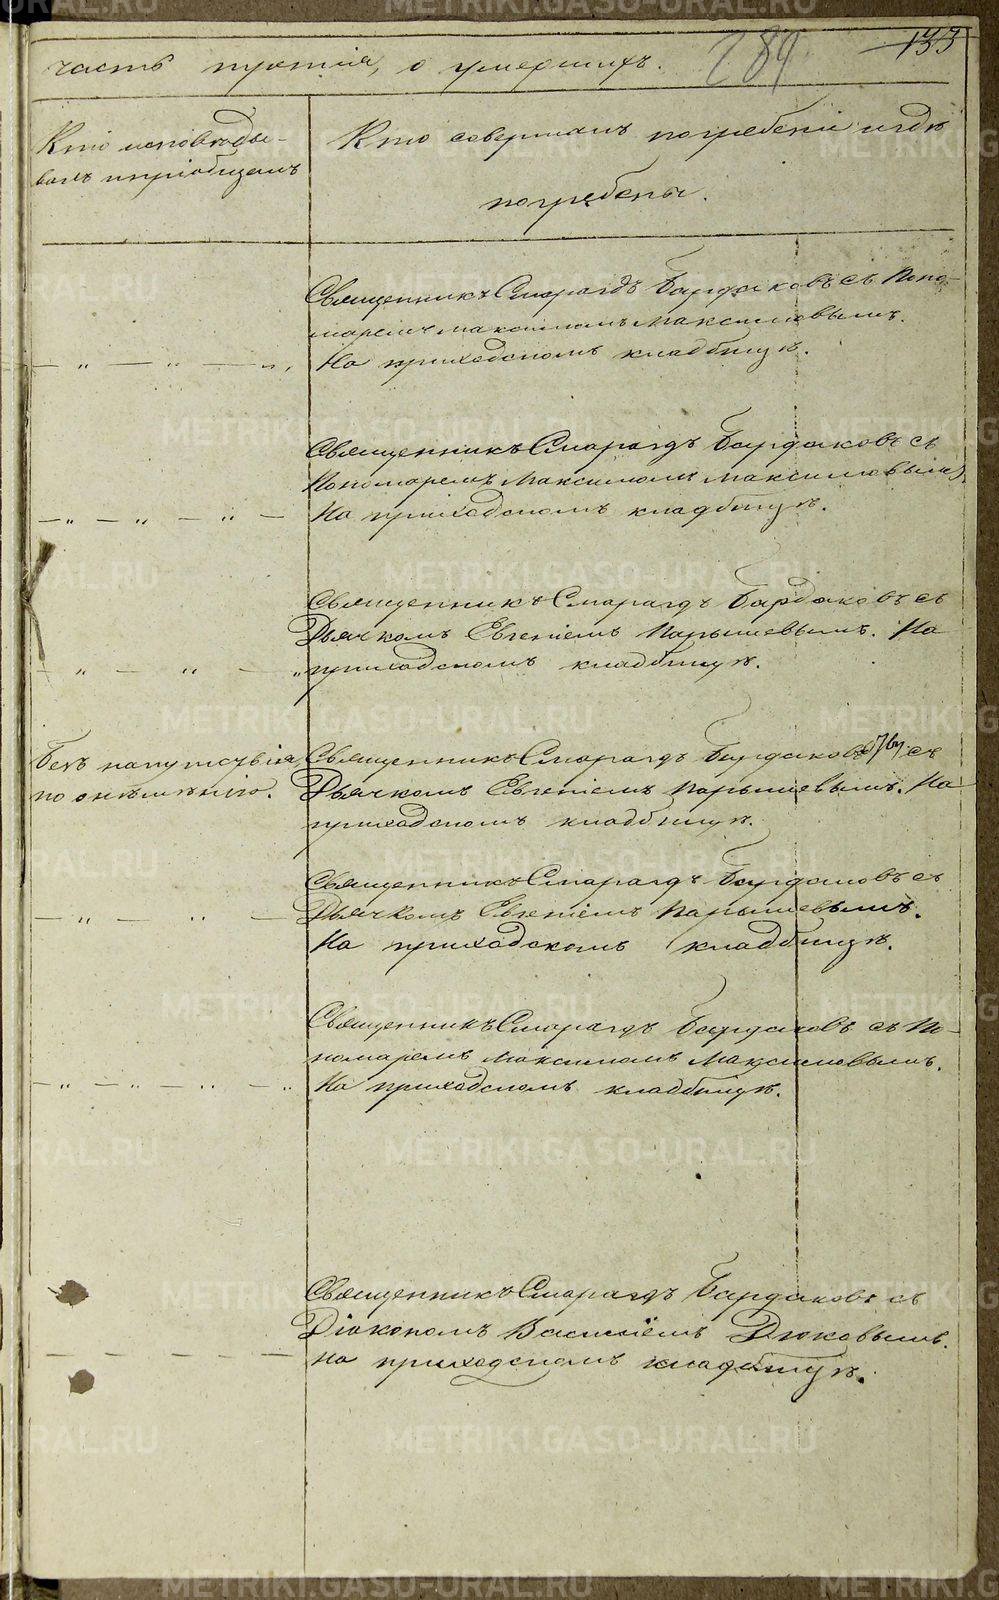 часть третія, о умершихъ.
289
133
Кто исповѣды-
валъ и пріобщалъ
Кто совершалъ погребеніе и гдѣ
погребены.
Священникъ Смарагдъ Бардаковъ съ Поно-
маремъ Максимомъ Максимовымъ.
— „ — „ — „
На приходскомъ кладбищѣ.
Священникъ Смарагдъ Бардаковъ съ
Пономаремъ Максимомъ Максимовымъ
— „ — „ — „ —
На приходскомъ кладбищѣ.
Священникъ Смарагдъ Бардаковъ съ
Дьячкомъ Евгеніемъ Парышевымъ. На
— „ — „ — „
приходскомъ кладбищѣ.
Безъ напутствія,
по онѣмѣнію.
Священникъ Смарагдъ Бардаковъ съ
Дьячкомъ Евгеніемъ Парышевымъ. На
приходскомъ кладбищѣ.
Священникъ Смарагдъ Бардаковъ съ
— „ — „ —
Дьячкомъ Евгеніемъ Парышевымъ.
На приходскомъ кладбищѣ.
Священникъ Смарагдъ Бардаковъ съ По-
номаремъ Максимомъ Максимовымъ.
— „ — „ — „
На приходскомъ кладбищѣ.
Священникъ Смарагдъ Бардаковъ съ
Діакономъ Василіемъ Дюковымъ.
— — — — —
на приходскомъ кладбищѣ.
METRIKI.GASO-URAL.RU